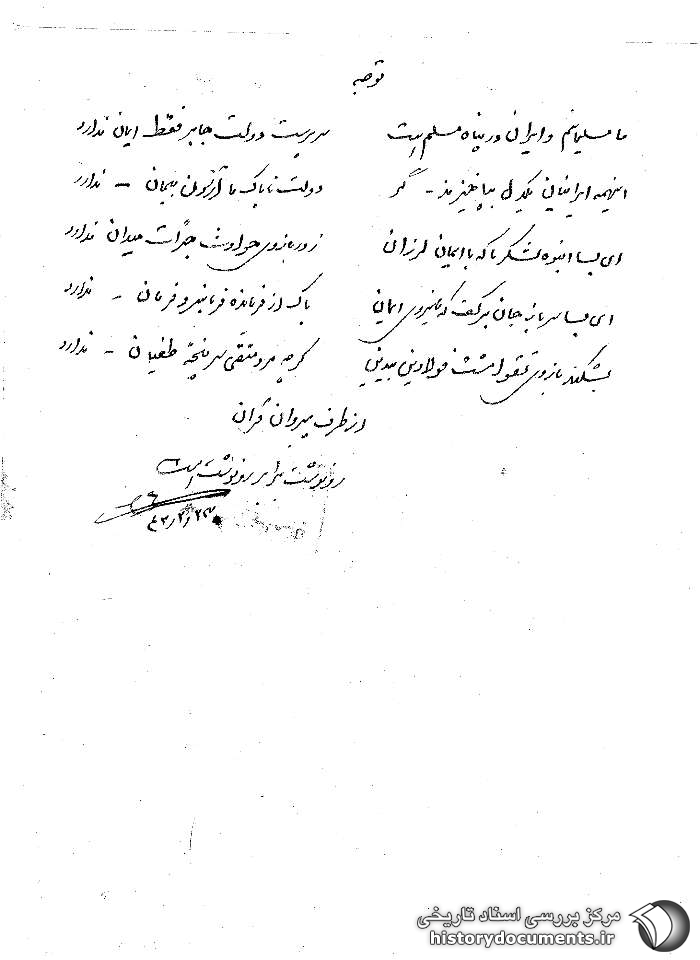 توصیه
ما مسلمانیم و ایران در پناه مسلم است سرپرست دولت جابر فقط ایمان ندارد
اینهمه ایرانیان یکدل بپاخیزند - گر دولت ناپاک ما آنان پیمان - ندارد
ای بسا انبوه لشکر با که با ایمان لرزان زور بازوی حوادث جرأت میدان ندارد
ای بسا سرباز جان برکف که با نیروی ایمان باک از فرمانده فرمانبر و فرمان - ندارد
بشکند بازوی تقوا مشت فولادین بیدینی گرچه مرد متقی سرپنجه طغیان - ندارد
از طرف پیروان قرآن
رونوشت برابر رونوشت است
۴۳/۲/۲۳
مرکز بررسی اسناد تاریخی
historydocuments.ir